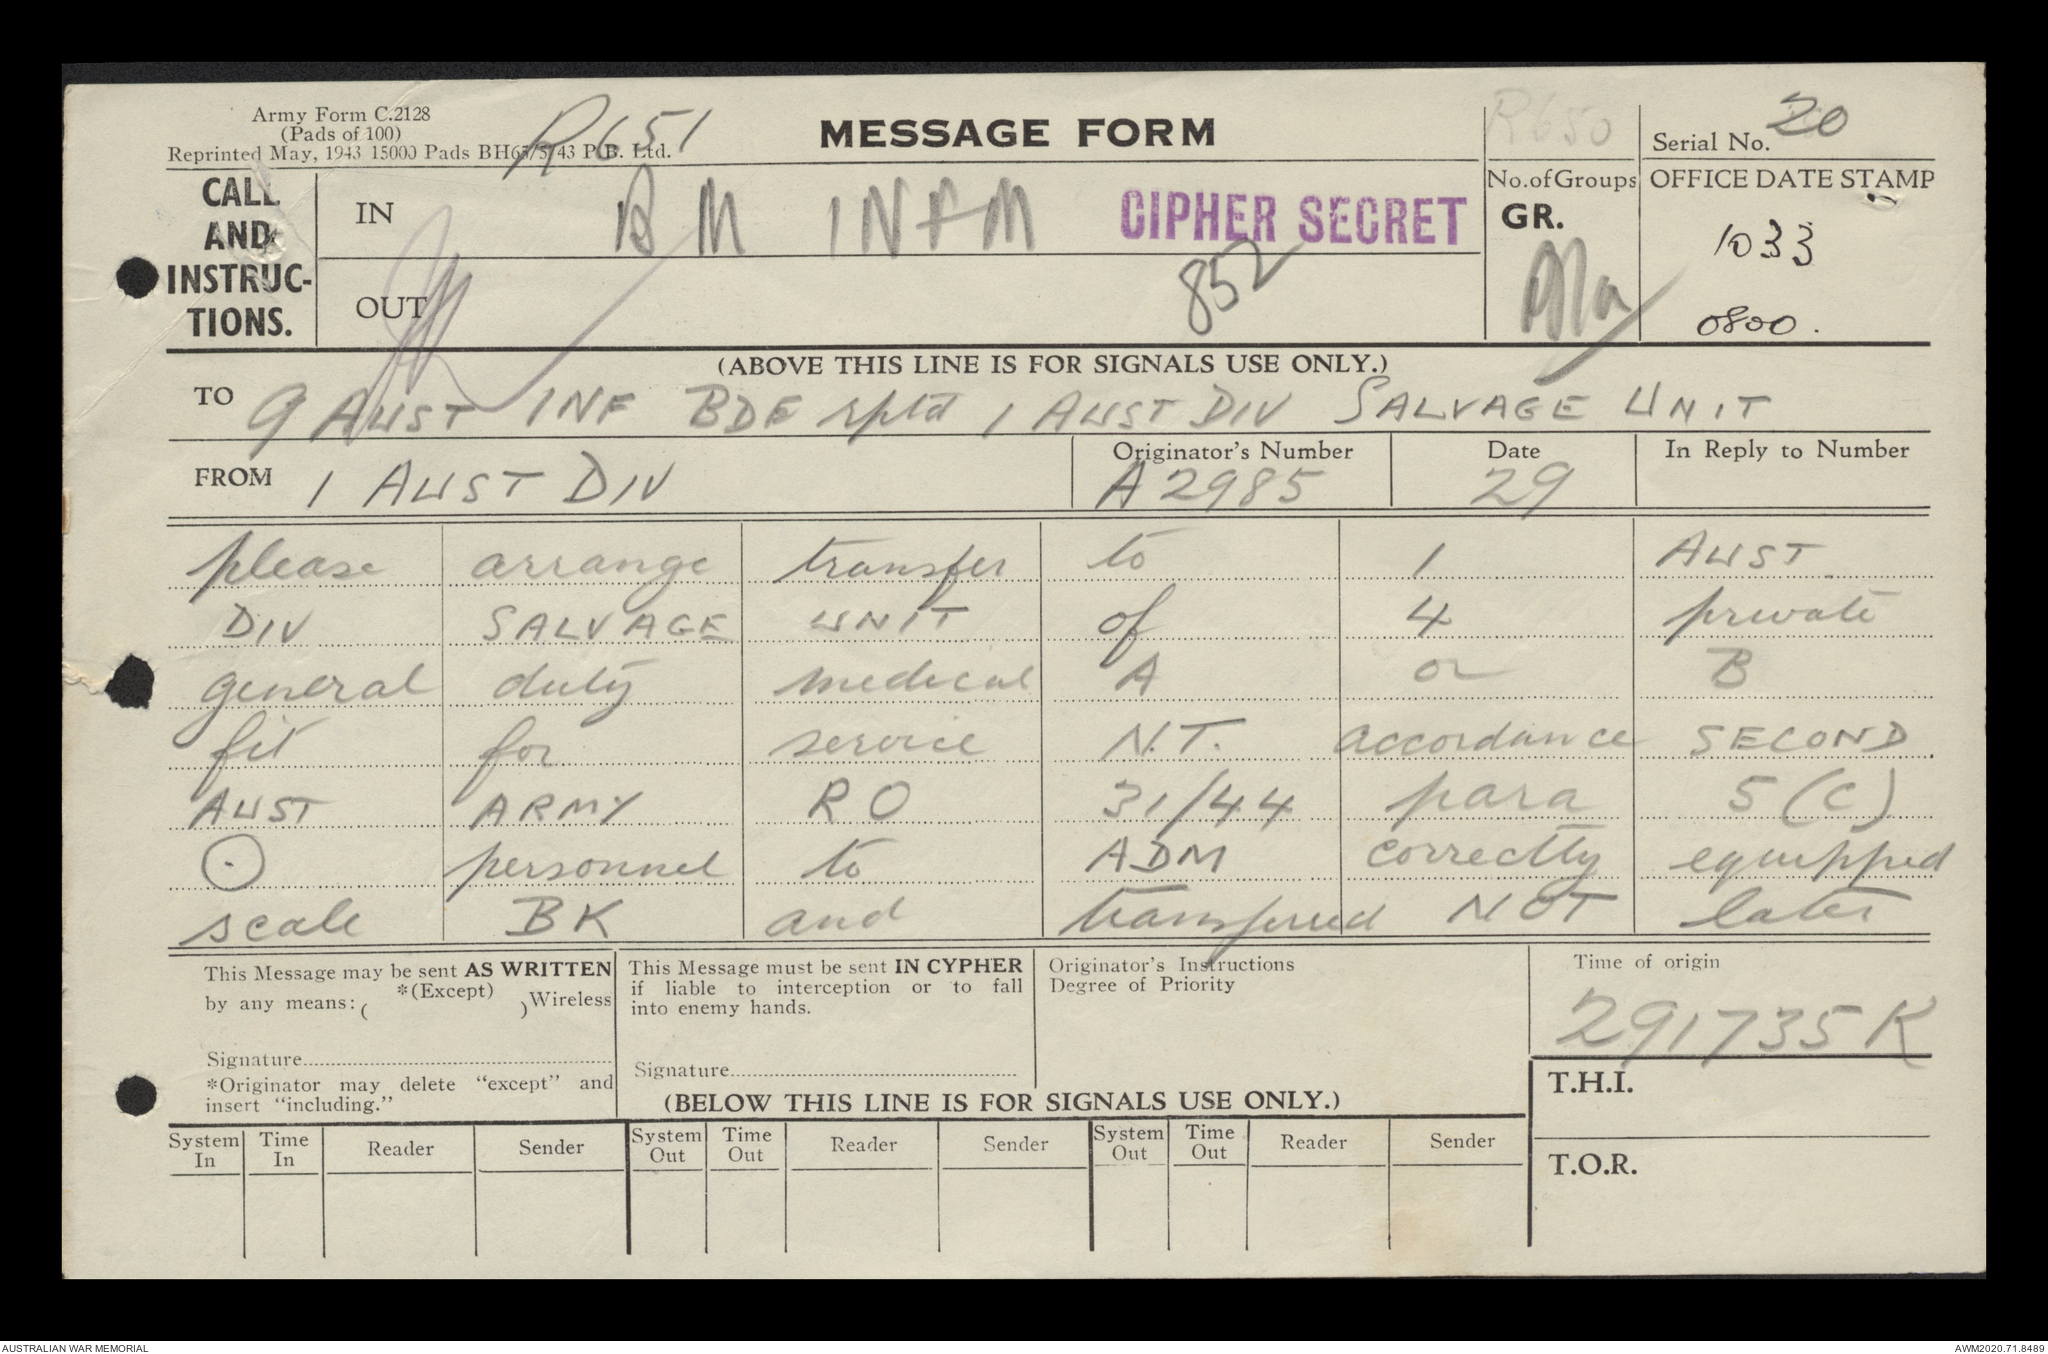 Army Form C.2128
(Pads of 100)
Reprinted May, 1943 15000 Pads BH65/5/43 P.B. Ltd.
R651
MESSAGE FORM
R650
Serial No. 20
CALL
AND
INSTRUC-
TIONS.
IN
B M INFM
CIPHER SECRET
No. of Groups
GR.
OFFICE DATE STAMP
1033
0800.
OUT
852
(ABOVE THIS LINE IS FOR SIGNALS USE ONLY.)
TO 9 AUST INF BDE rptd 1 AUST DIV SALVAGE UNIT
FROM 1 AUST DIV
Originator's Number
A2985
Date
29
In Reply to Number
please arrange transfer to 1 AUST
DIV SALVAGE UNIT of 4 private
general duty medical A or B
fit for service N.T. accordance SECOND
AUST ARMY RO 31/44 para 5(C)
⊙ personnel to ADM correctly equipped
scale BK and transferred NOT later
This Message may be sent AS WRITTEN
by any means: ( *(Except) ) Wireless
Signature
*Originator may delete "except" and
insert "including."
This Message must be sent IN CYPHER
if liable to interception or to fall
into enemy hands.
Signature
Originator's Instructions
Degree of Priority
Time of origin
291735K
T.H.I.
T.O.R.
(BELOW THIS LINE IS FOR SIGNALS USE ONLY.)
System In Time In Reader Sender System Out Time Out Reader Sender System Out Time Out Reader Sender
AUSTRALIAN WAR MEMORIAL
AWM2020.71.8489